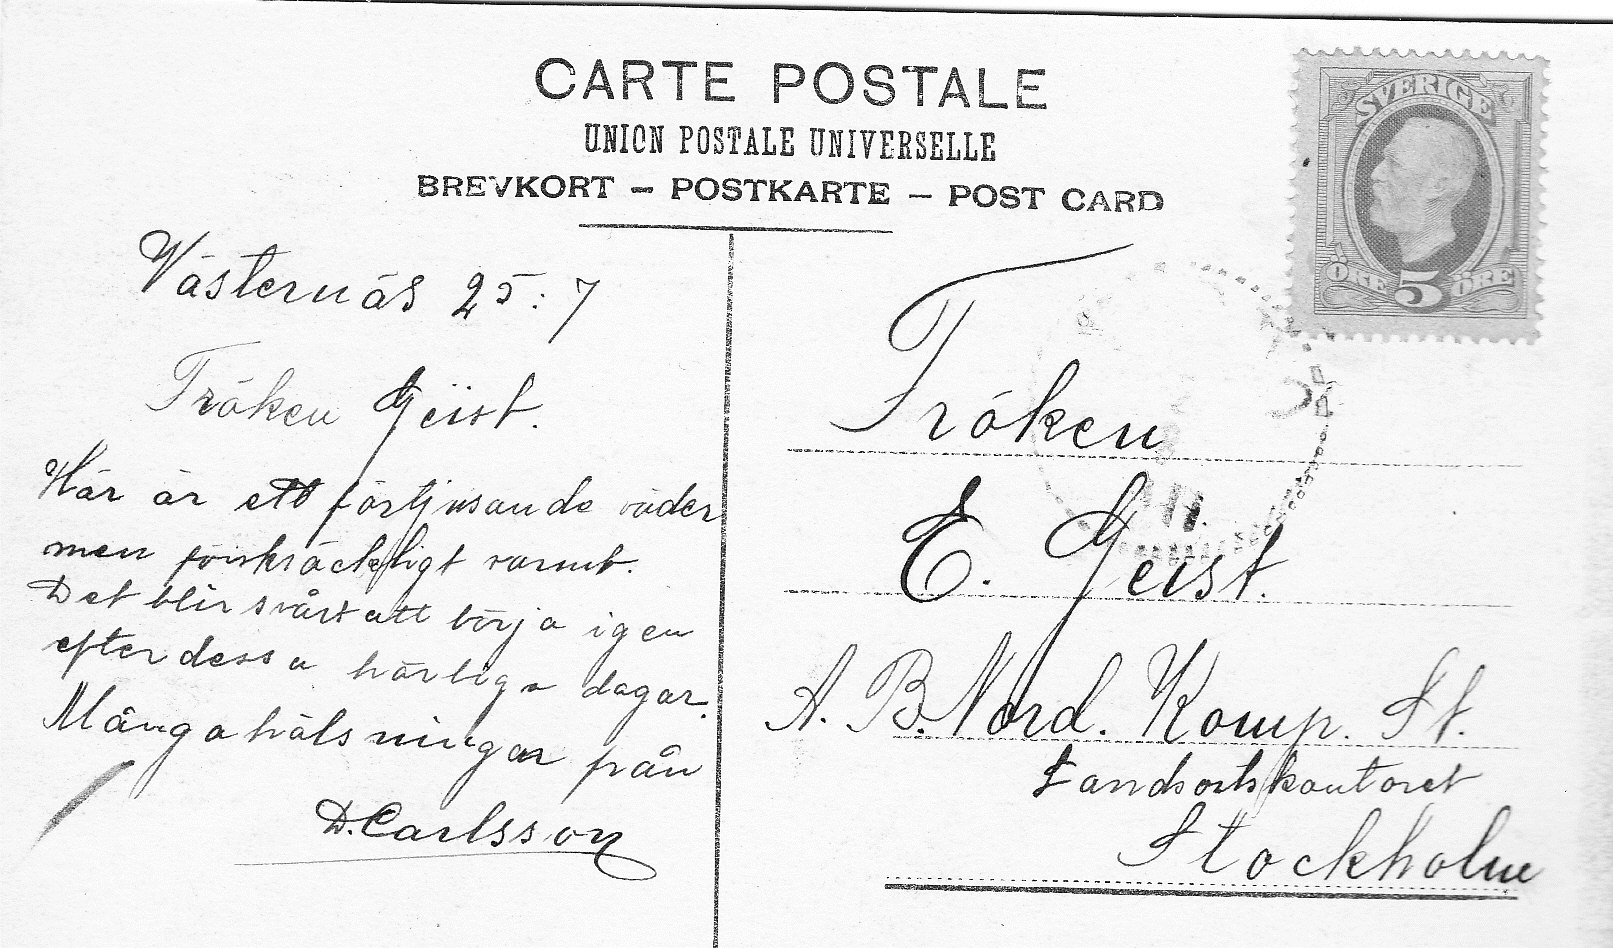 CARTE POSTALE
UNION POSTALE UNIVERSELLE
BREVKORT – POSTKARTE – POST CARD
SVERIGE
ÖRE 5 ÖRE
Västernäs 25:7
Fröken Geist.
Här är ett förtjusande väder
men förskräckligt varmt.
Det blir svårt att börja igen
efter dessa härliga dagar.
Många hälsningar från
D. Carlsson
Fröken
E. Geist.
A. B. Nord. Komp. St.
Landsortskontoret
Stockholm